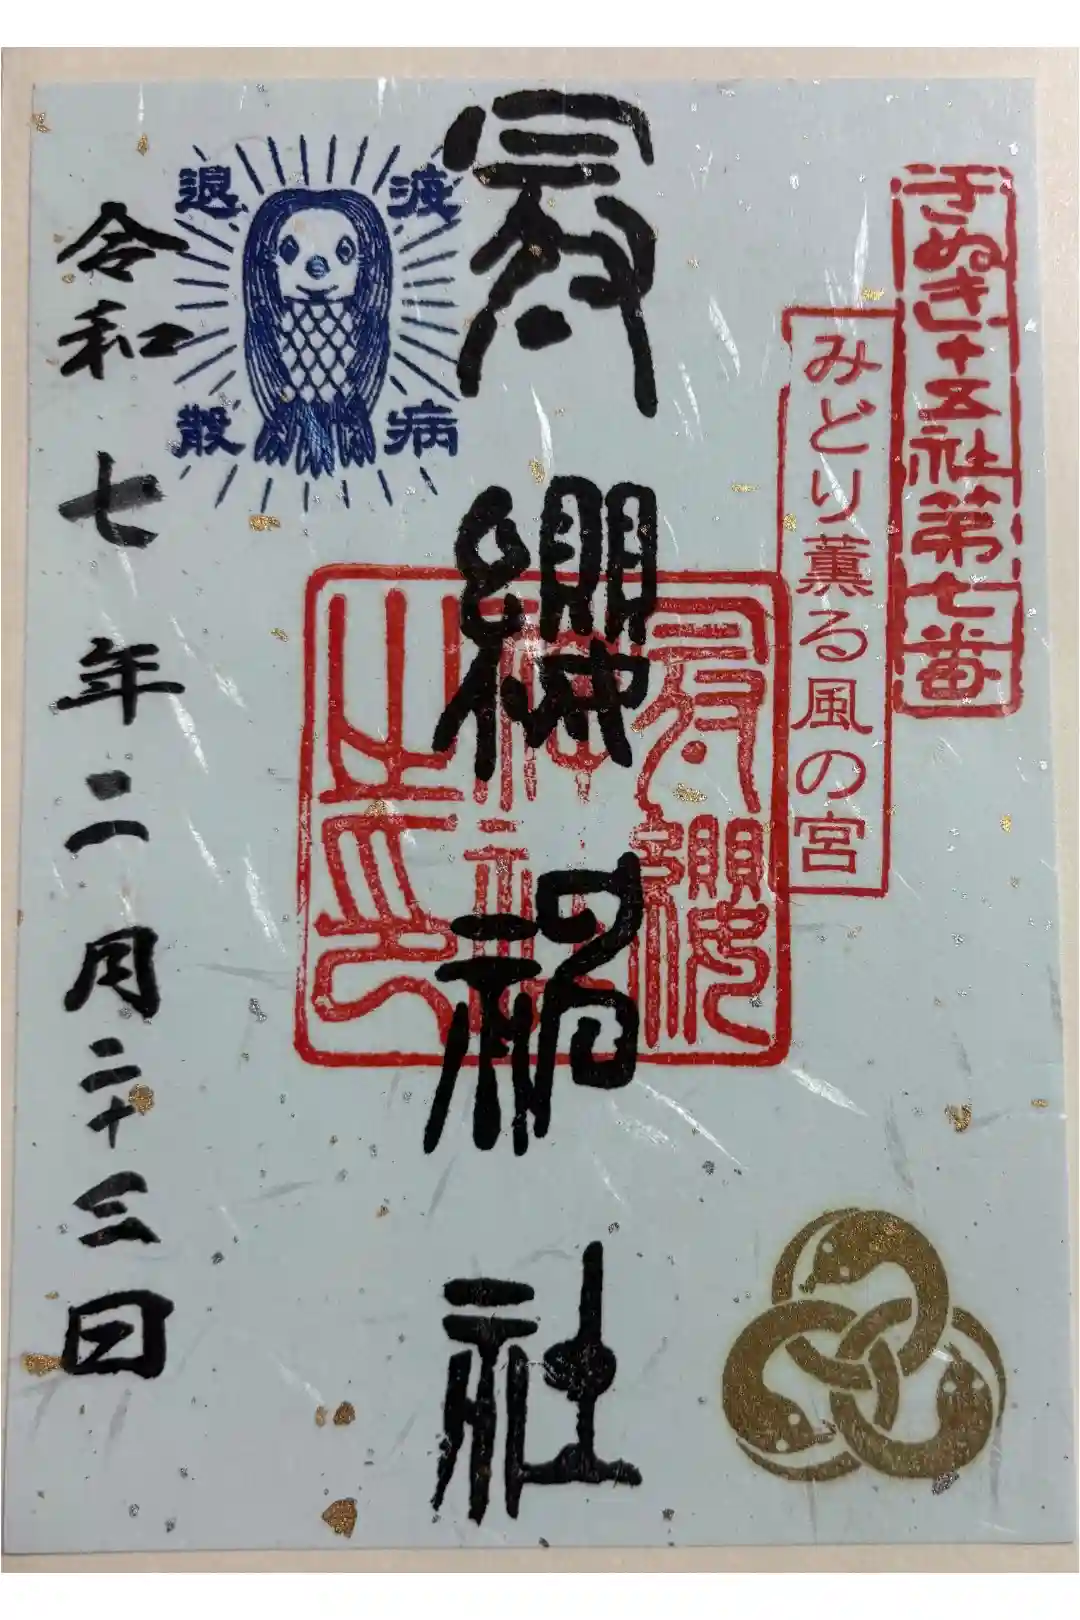 さぬき十五社第七番
みどり薫る風の宮
冠纓神社
冠纓神社之印
疫病退散
令和七年二月二十三日